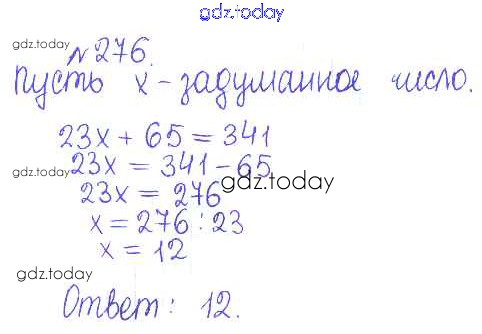 gdz.today
gdz.today
№276.
Пусть x - задуманное число.
23x + 65 = 341
gdz.today
23x = 341 - 65
23x = 276
gdz.today
x = 276 : 23
x = 12
gdz.today
Ответ: 12.